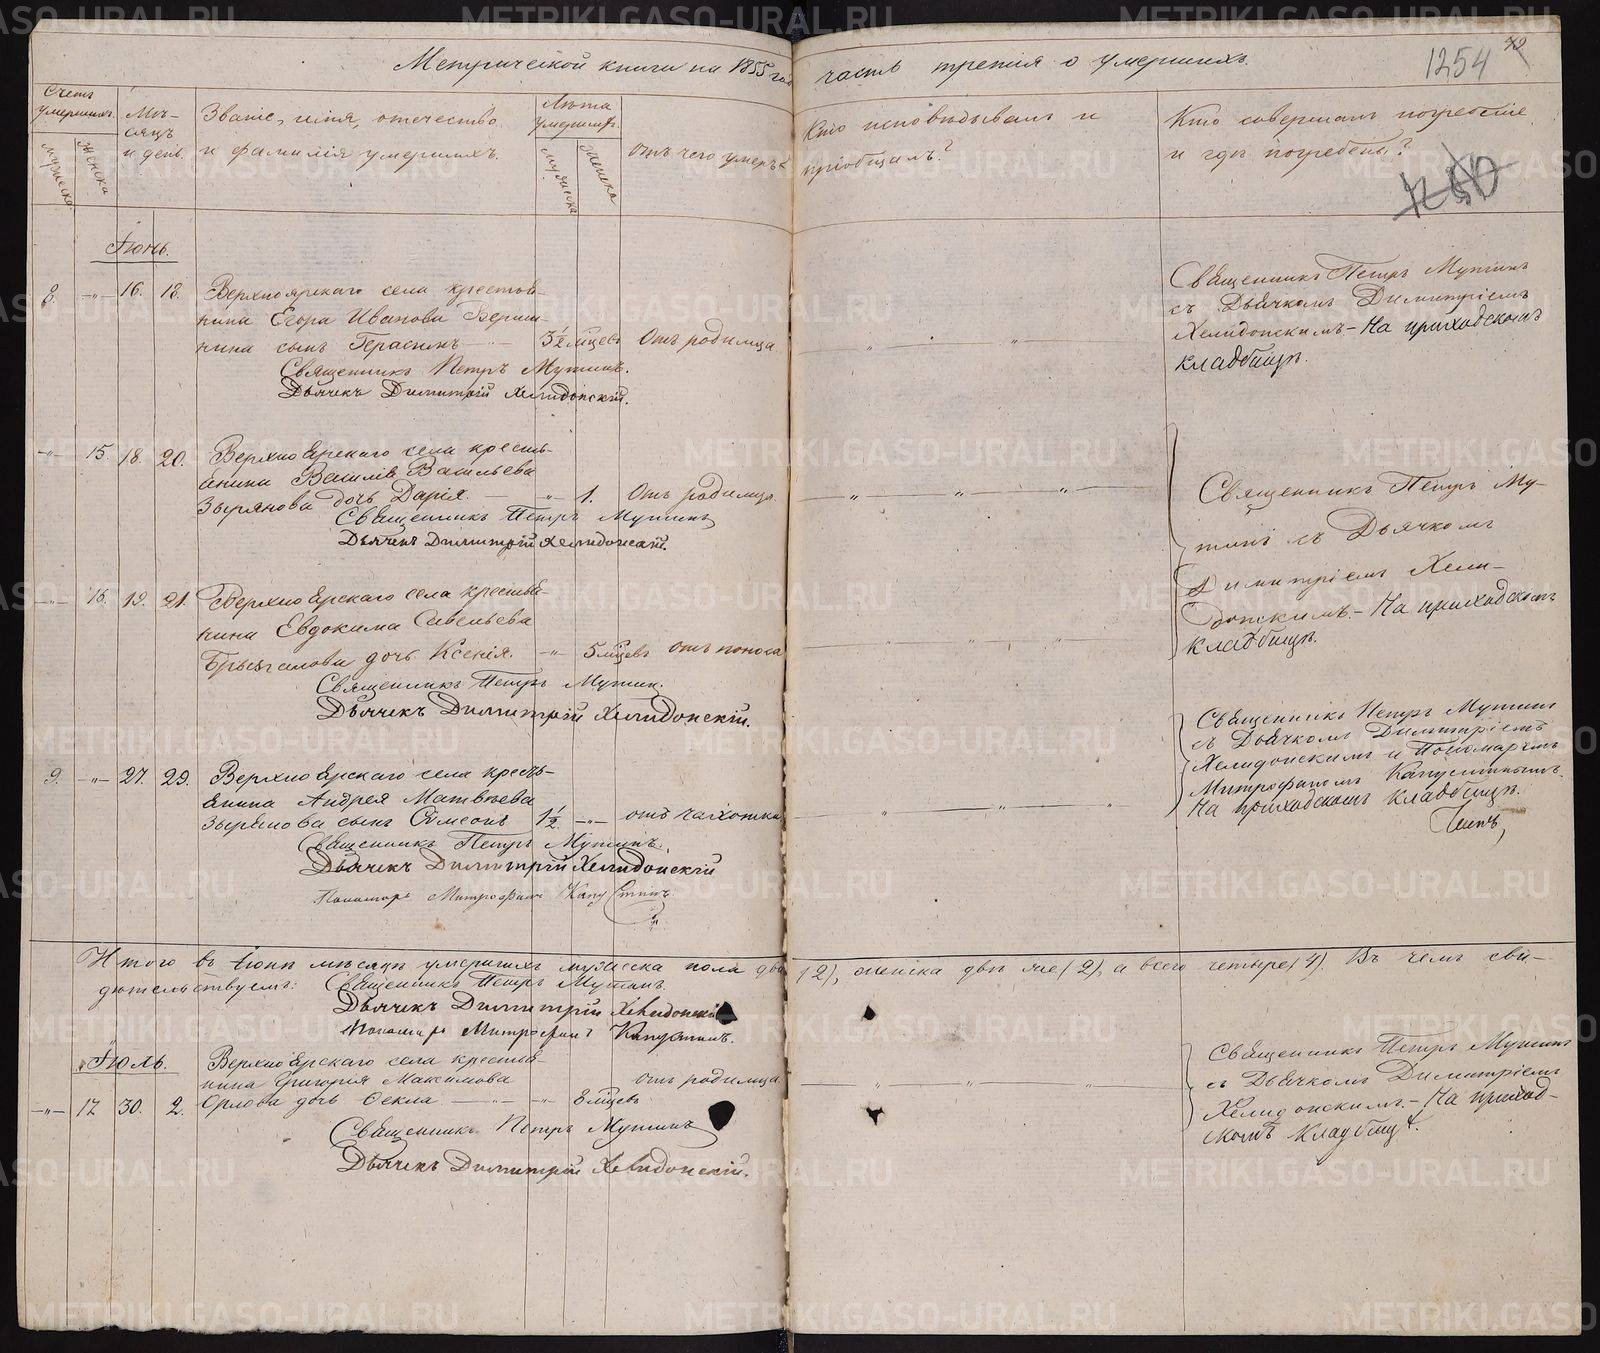 Метрической книги на 1855 год часть третия о умершихъ.
1254
Счетъ умершихъ.
мужеска
женска
Мѣсяцъ и день.
Званіе, имя, отечество и фамилія умершихъ.
Лѣта умершихъ.
мужеска
женска
отъ чего умеръ
Кто исповѣдывалъ и пріобщалъ?
Кто совершалъ погребеніе и гдѣ погребены?
Іюнь.
8. -"- 16. 18. Верхноярскаго села крестья-
нина Егора Иванова Верши-
нина сынъ Герасимъ 3½ мѣсяцевъ Отъ родимца
Священникъ Петръ Мутинъ.
Дьячекъ Димитрій Хелидонскій.
Священникъ Петръ Мутинъ
съ Дьячкомъ Димитріемъ
Хелидонскимъ - На приходскомъ
кладбищѣ.
-"- 15. 18. 20. Верхноярскаго села кресть-
янина Василія Васильева
Зырянова дочь Дарія. -"- 1. Отъ родимца
Священникъ Петръ Мутинъ
Дьячекъ Димитрій Хелидонскій.
Священникъ Петръ Му-
тинъ съ Дьячкомъ
Димитріемъ Хели-
донскимъ. - На приходскомъ
кладбищѣ.
-"- 16. 19. 21. Верхноярскаго села крестья-
нина Евдокима Савельева
Брызгалова дочь Ксенія. -"- 5 мѣсяцевъ отъ поноса
Священникъ Петръ Мутинъ.
Дьячекъ Димитрій Хелидонскій.
9. -"- 27. 29. Верхноярскаго села кресть-
янина Андрея Матвѣева
Зырянова сынъ Симеонъ 1½ -"- отъ чахотки
Священникъ Петръ Мутинъ.
Дьячекъ Димитрій Хелидонскій
Пономарь Митрофанъ Капустинъ.
Священникъ Петръ Мутинъ
съ Дьячкомъ Димитріемъ
Хелидонскимъ и Пономаремъ
Митрофаномъ Капустинымъ.
На приходскомъ кладбищѣ.
Итого въ Іюнѣ мѣсяцѣ умершихъ мужеска пола два (2), женска двѣ же (2), а всего четыре (4). Въ чемъ сви-
дѣтельствуемъ: Священникъ Петръ Мутинъ.
Дьячекъ Димитрій Хелидонскій
Пономарь Митрофанъ Капустинъ.
Іюль.
Верхноярскаго села крестья-
нина Григорія Максимова отъ родимца
-"- 17 30. 2. Орлова дочь Ѳекла -"- 8 мѣсяцевъ
Священникъ Петръ Мутинъ
Дьячекъ Димитрій Хелидонскій.
Священникъ Петръ Мутинъ
съ Дьячкомъ Димитріемъ
Хелидонскимъ. - На приход-
скомъ кладбищѣ.
METRIKI.GASO-URAL.RU